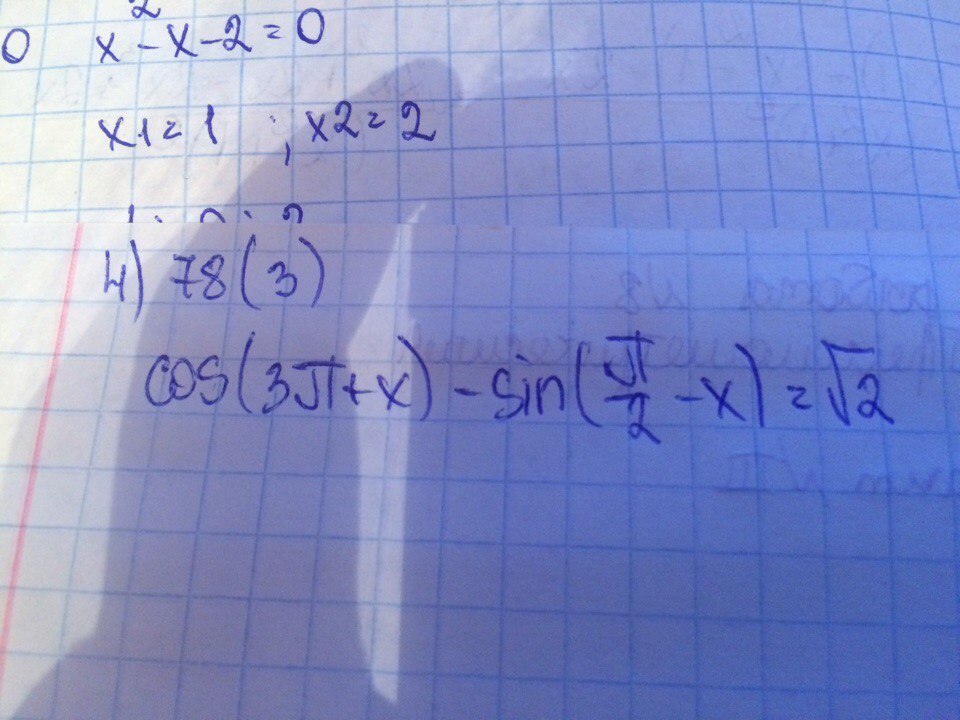 0 x²-x-2=0
x1=1 ; x2=2
4) 78(3)
cos(3π+x)-sin(π/2-x)=√2